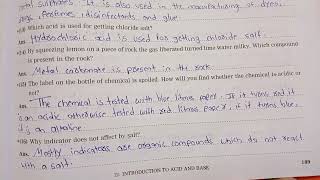 metal sulphates. It is also used in the manufacturing of dyes,
drugs, Perfumes, disinfectants and glue.
Which acid is used for getting chloride salt?
Ans. Hydrochloric acid is used for getting chloride salt.
By squeezing lemon on a piece of rock the gas liberated turned lime water milky. Which compound
is present in the rock?
Ans. Metal carbonate is present in the rock.
The label on the bottle of chemical is spoiled. How will you finder whether the chemical is acidic or
not?
Ans. The chemical is tested with blue litmus paper. If it turns red it
is an acidic otherwise tested with red litmus paper, if it turns blue,
it's an alkaline.
Why indicator does not affect by salt?
Ans. Mostly indicators are organic compounds which do not react
with a salt.
INTRODUCTION TO ACID AND BASE
109